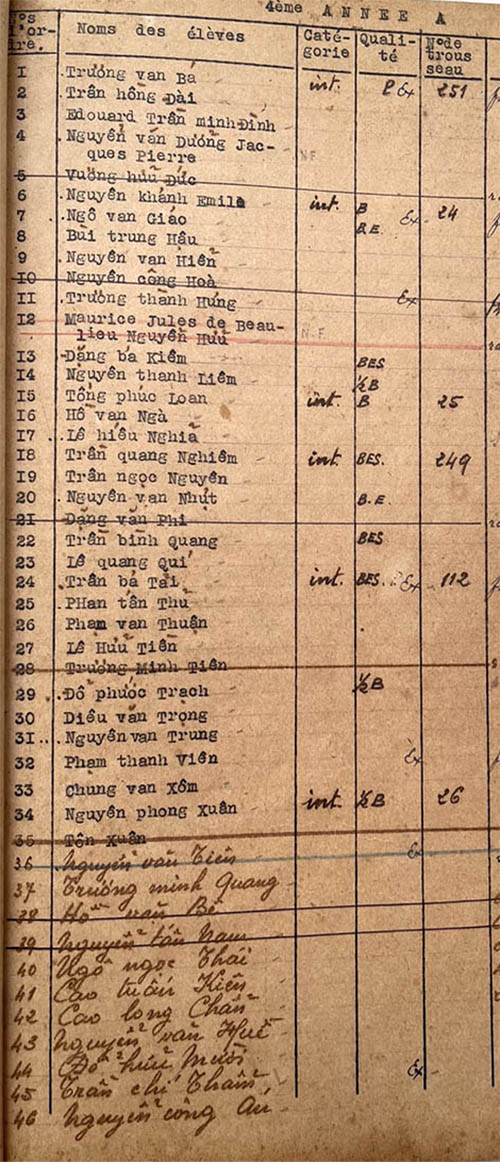 4ème ANNEE A
Nos d'or- dre. Noms des élèves Caté- gorie Quali- té Node trous seau
1 Trương van Bá
2 Trần hồng Đài int. Ex 251
3 Edouard Trần minh Đình
4 Nguyễn văn Dương Jac-
ques Pierre N.F
5 Vương hữu Đức
6 Nguyễn khánh Emile int. B 24
7 Ngô van Giáo B.E. Ex
8 Bùi trung Hậu
9 Nguyễn van Hiền
10 Nguyễn công Hoà
11 Trương thành Hưng Ex
12 Maurice Jules de Beau-
lieu Nguyễn Hữu N.F
13 Đặng bá Kiêm BES
14 Nguyễn thanh Liêm ½B
15 Tống phúc Loan int. B 25
16 Hồ van Ngà
17 Lê hiếu Nghĩa
18 Trần quang Nghiêm int. BES. 249
19 Trần ngọc Nguyên
20 Nguyễn van Nhựt B.E
21 Đặng văn Phi
22 Trần bình Quang BES
23 Lê quang Quí
24 Trần bá Tài int. BES. Ex 112
25 PHan tấn Thu
26 Phạm van Thuận
27 Lê Hữu Tiền
28 Trương Minh Tiên
29 Đỗ phước Trạch ½B
30 Diêu văn Trọng
31 Nguyễn van Trung
32 Phạm thanh Viên Ex
33 Chung van Xồm
34 Nguyễn phong Xuân int. ½B 26
35 Tôn Xuân
36 Nguyễn văn Tiên Ex
37 Trương minh Quang
38 Hồ văn Bê
39 Nguyễn tấn Nam
40 Ngô ngọc Thái
41 Cao tuấn Kiên
42 Cao long Chấn
43 Nguyễn văn Huê
44 Đỗ hữu Mười Ex
45 Trần chí Thần
46 Nguyễn công Ân